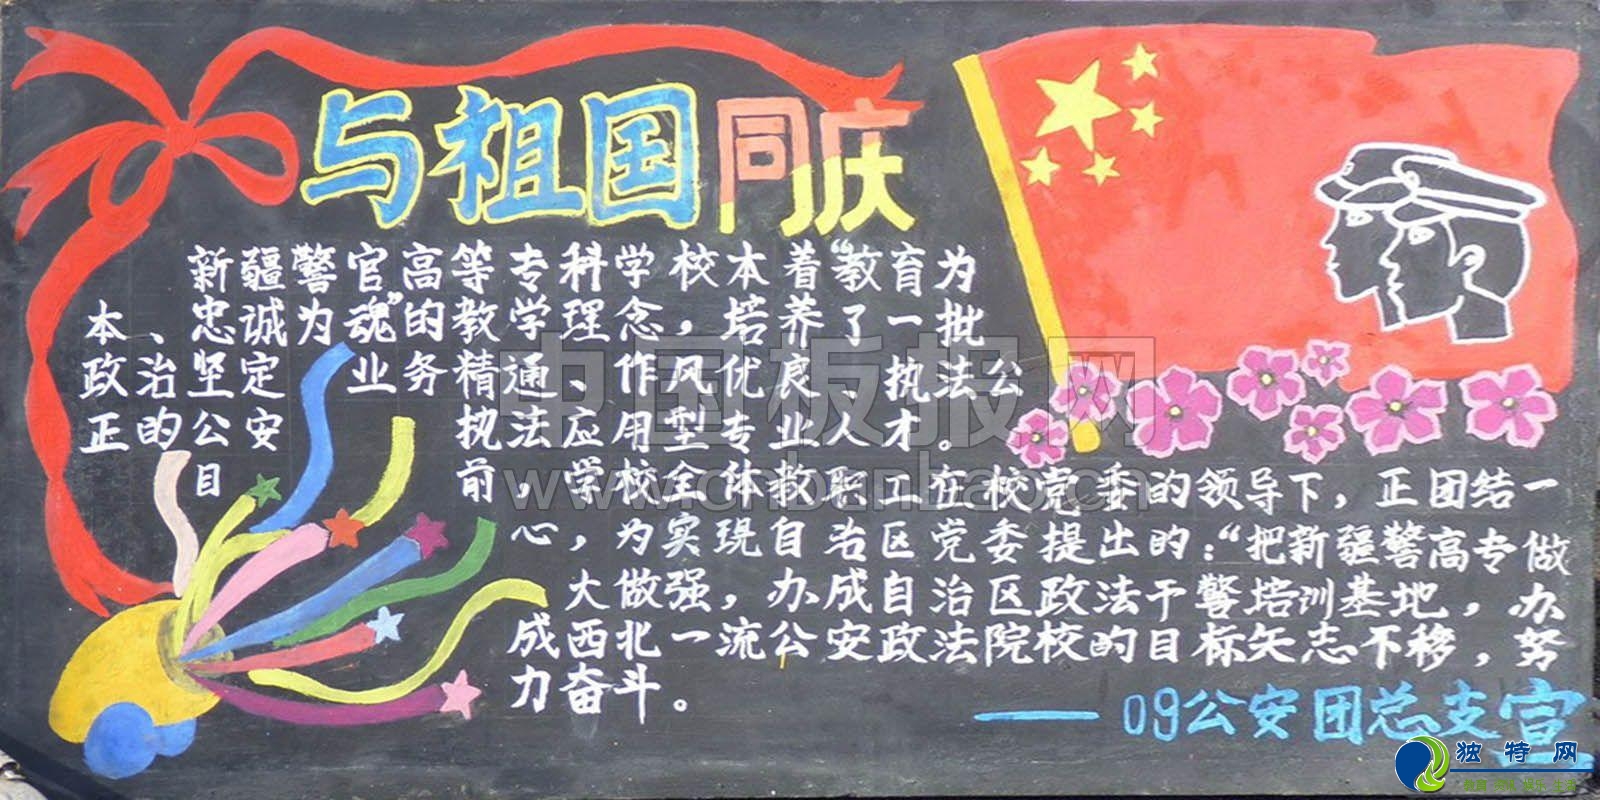 与祖国同庆
新疆警官高等专科学校本着“教育为
本、忠诚为魂”的教学理念，培养了一批
政治坚定 业务精通、作风优良、执法公
正的公安 执法应用型专业人才。
目 前，学校全体教职工在校党委的领导下，正团结一
心，为实现自治区党委提出的：“把新疆警高专做
大做强，办成自治区政法干警培训基地，办
成西北一流公安政法院校的目标矢志不移，努
力奋斗。
——09公安团总支宣
中国板报网
www.cnbanbao.cn
独特网